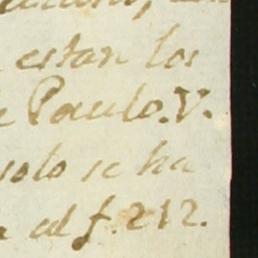 estan los
Paulo.V.
solo se ha
al f.212.